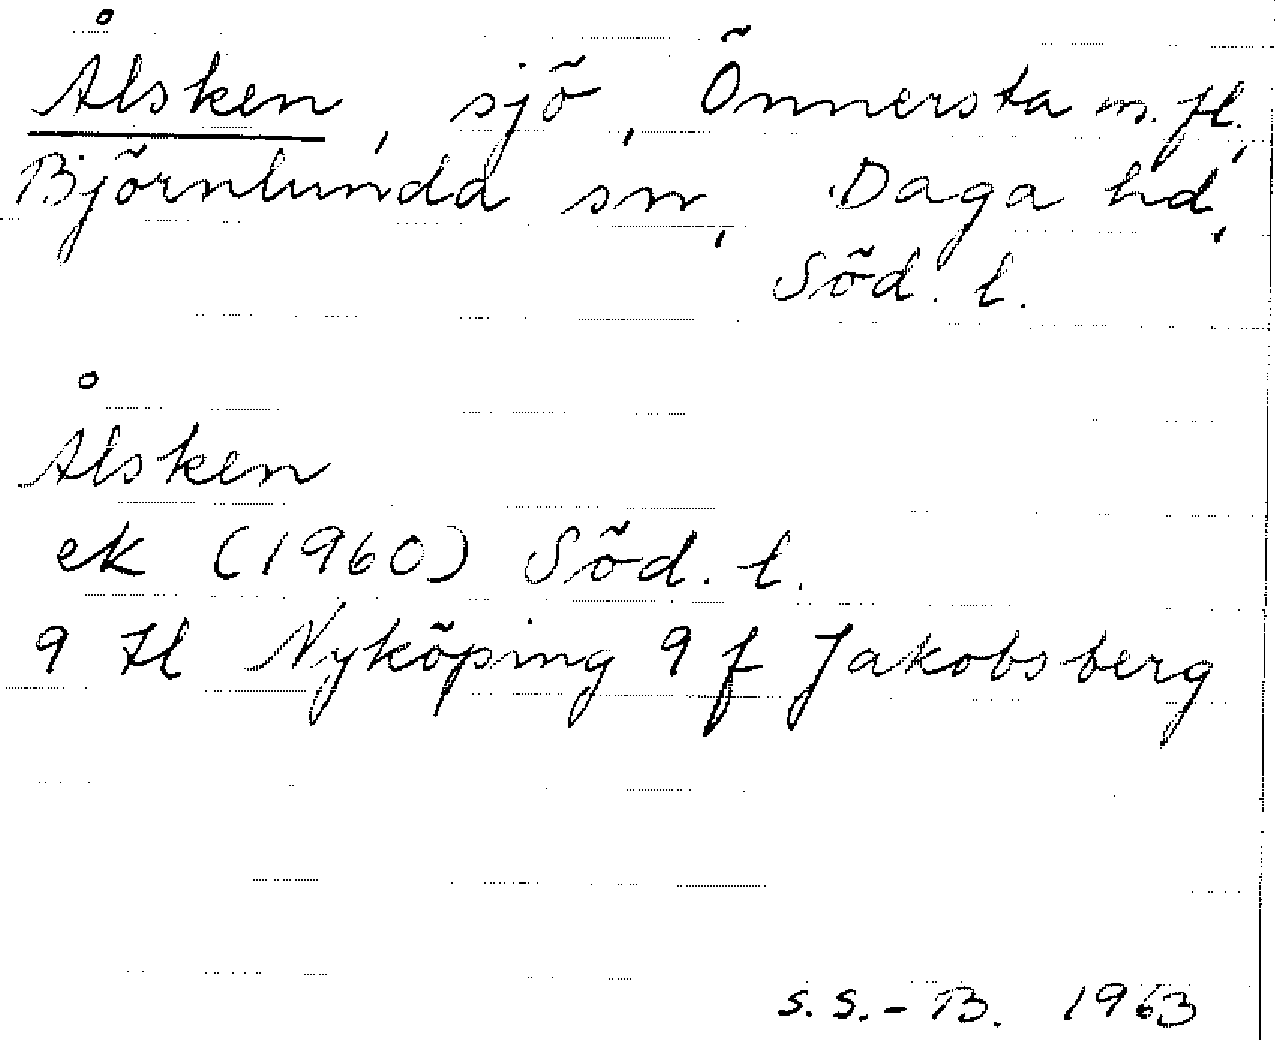 Ålsken, sjö, Önnersta m.fl.,
Björnlunda sn, Daga hd,
Söd. l.
Ålsken
ek (1960) Söd. l.
9 H Nyköping 9 f Jakobsberg
S.S.-B. 1963